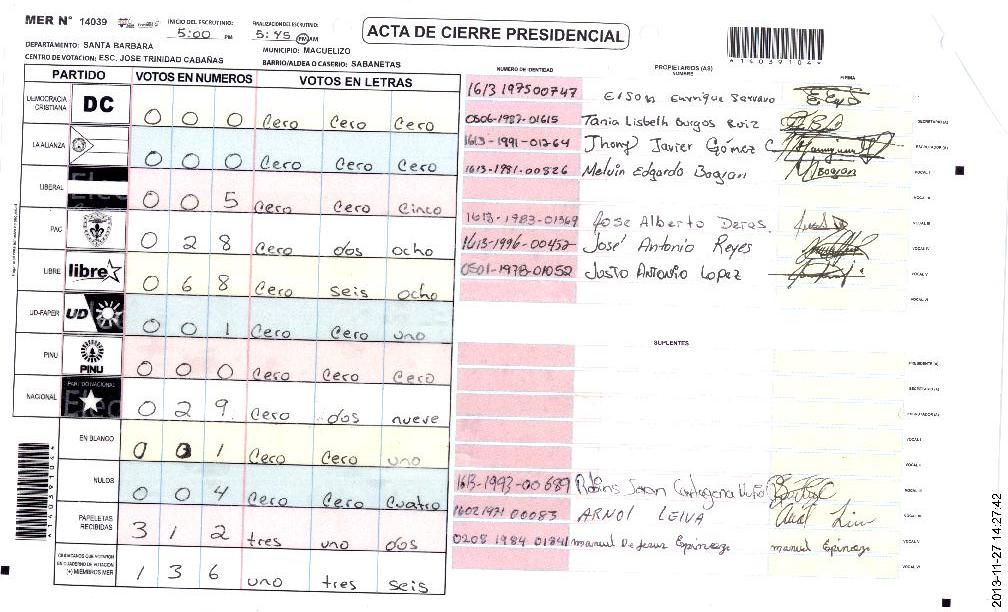 MER N° 14039 INICIO DEL ESCRUTINIO: 5:00 PM FINALIZACION DEL ESCRUTINIO: 5:45 PM AM
ACTA DE CIERRE PRESIDENCIAL
A140391044
DEPARTAMENTO: SANTA BARBARA MUNICIPIO: MACUELIZO
CENTRO DE VOTACION: ESC. JOSE TRINIDAD CABAÑAS BARRIO/ALDEA O CASERIO: SABANETAS
PARTIDO VOTOS EN NUMEROS VOTOS EN LETRAS
DEMOCRACIA CRISTIANA DC 0 0 0 Cero Cero Cero
LA ALIANZA 0 0 0 Cero Cero Cero
LIBERAL 0 0 5 Cero Cero Cinco
PAC 0 2 8 Cero dos ocho
LIBRE libre 0 6 8 Cero seis ocho
UD-FAPER UD 0 0 1 Cero Cero uno
PINU PINU 0 0 0 Cero Cero Cero
NACIONAL PARTIDO NACIONAL 0 2 9 Cero dos nueve
EN BLANCO 0 0 1 Cero Cero uno
NULOS 0 0 4 Cero Cero Cuatro
PAPELETAS RECIBIDAS 3 1 2 tres uno dos
CIUDADANOS QUE VOTARON EN CUADERNO DE VOTACION (+) MIEMBROS MER 1 3 6 uno tres seis
NUMERO DE IDENTIDAD PROPIETARIOS (AS) NOMBRE FIRMA
1613 197500747 Enrique
0506-1987-01615 Tania Lisbeth Burgos Ruiz SECRETARIO (A)
1613-1991-01264 Jhony Javier Gómez C ESCRUTADOR (A)
1613-1981-00826 Melvin Edgardo Bogran M Bogran VOCAL I
VOCAL II
1613-1983-01369 Jose Alberto Deras. VOCAL III
1613-1996-00452 José Antonio Reyes VOCAL IV
0501-1978-01052 Justo Antonio Lopez VOCAL V
VOCAL VI
SUPLENTES
PRESIDENTE (A)
SECRETARIO (A)
ESCRUTADOR (A)
VOCAL I
VOCAL II
1613-1993-00689 Cartagena VOCAL III
16021971 00083 ARNOL LEIVA VOCAL IV
0208 1984 01841 manuel De Jesus Espinoza manuel Espinoza VOCAL V
VOCAL VI
2013-11-27 14:27:42